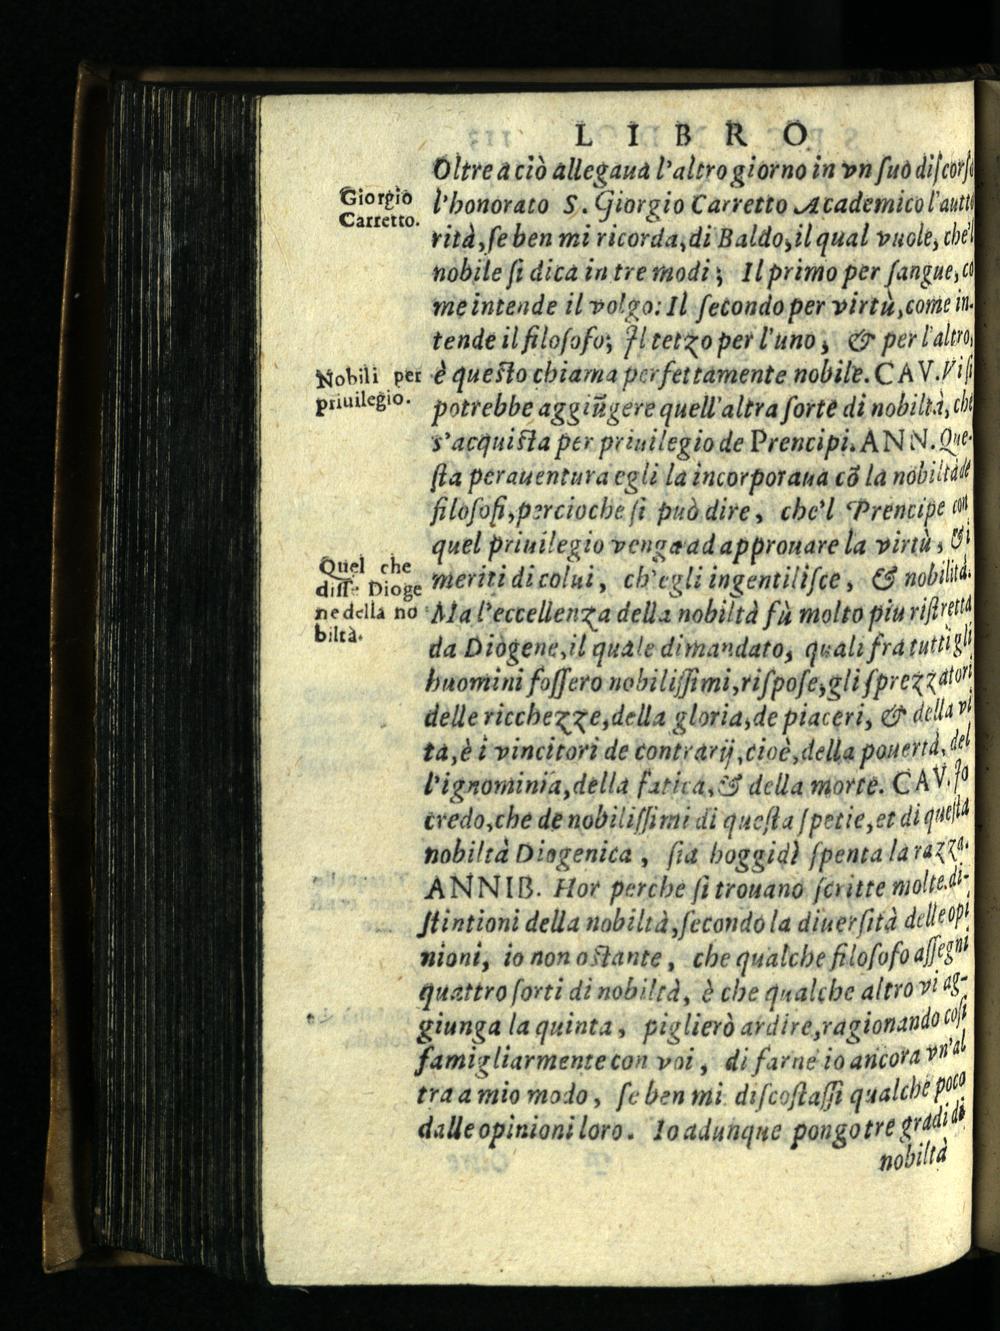 LIBRO
Oltre a ciò allegaua l'altro giorno in vn ſuo diſcorſo
Giorgio
Carretto.
l'honorato S. Giorgio Carretto Academico l'autto
rità, ſe ben mi ricorda, di Baldo, il qual vuole, che'l
nobile ſi dica in tre modi; Il primo per ſangue, co
me intende il volgo: Il ſecondo per virtù, come in-
tende il filoſofo; Il tetzo per l'uno, & per l'altro,
Nobili per
priuilegio.
è queſto chiama perfettamente nobile. CAV. Vi ſi
potrebbe aggiũgere quell'altra ſorte di nobiltà, che
s'acquiſta per priuilegio de Prencipi. ANN. Que-
ſta perauentura egli la incorporaua cõ la nobiltà de
filoſofi, percioche ſi può dire, che'l Prencipe con
quel priuilegio venga ad approuare la virtù, & i
Quel che
diſſe Dioge
ne della no
biltà.
meriti di colui, ch'egli ingentiliſce, & nobilita.
Ma l'eccellenza della nobiltà fù molto piu riſtretta
da Diogene, il quale dimandato, quali fra tutti gli
huomini foſſero nobiliſſimi, riſpoſe, gli ſprezzatori
delle ricchezze, della gloria, de piaceri, & della vi
ta, è i vincitori de contrarij, cioè, della pouertà, del
l'ignominia, della fatica, & della morte. CAV. Io
credo, che de nobiliſſimi di queſta ſpetie, et di queſta
nobiltà Diogenica, ſia hoggidì ſpenta la razza.
ANNIB. Hor perche ſi trouano ſcritte molte di-
ſtintioni della nobiltà, ſecondo la diuerſità delle opi
nioni, io non oſtante, che qualche filoſofo aſſegni
quattro ſorti di nobiltà, è che qualche altro vi ag-
giunga la quinta, piglierò ardire, ragionando coſi
famigliarmente con voi, di farne io ancora vn'al
tra a mio modo, ſe ben mi diſcoſtaſſi qualche poco
dalle opinioni loro. Io adunque pongo tre gradi di
nobiltà